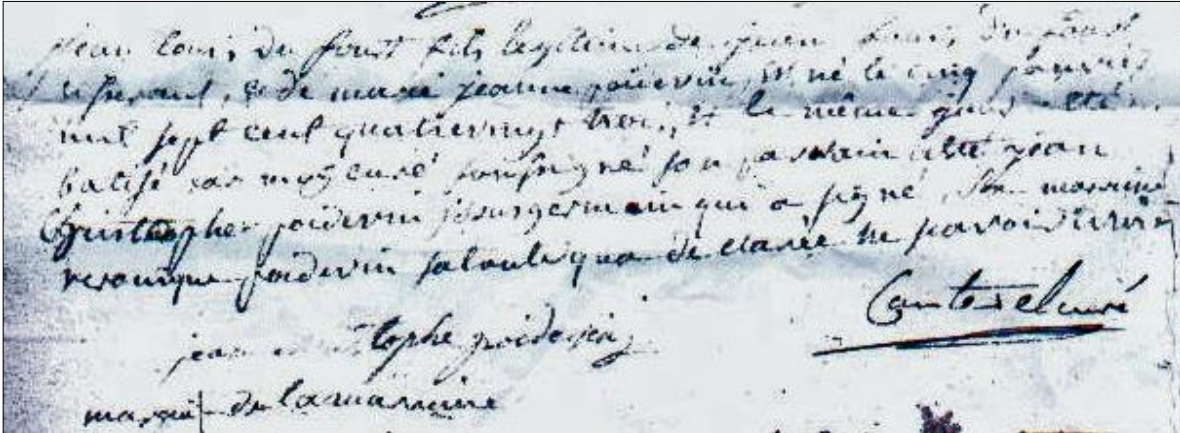 jean louis du foust fils legitime de jean louis du foust
et de marie jeanne poidevin, est né le cinq janvier
mil sept cent quatrevingt trois, et le même jour a été
batisé par moy curé soussigné son parrain a été jean
Christophe poidevin germain qui a signé, sa marraine
veronique poidevin sa tante qui a declarée ne savoir ecrire
Cantrel curé
jean christophe poidevin
marque de la marraine